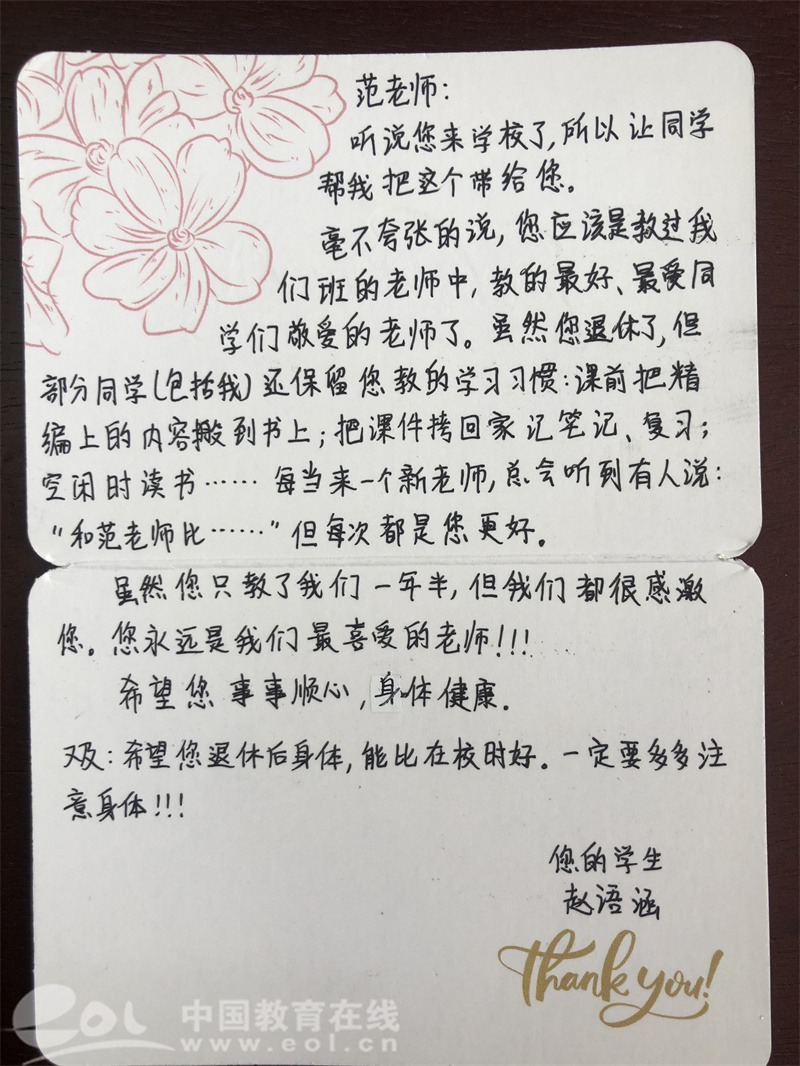 范老师:
听说您来学校了,所以让同学
帮我把这个带给您。
毫不夸张的说,您应该是教过我
们班的老师中,教的最好、最爱同
学们敬爱的老师了。虽然您退休了,但
部分同学(包括我)还保留您教的学习习惯:课前把精
编上的内容搬到书上;把课件拷回家记笔记、复习;
空闲时读书……每当来一个新老师,总会听到有人说:
“和范老师比……”但每次都是您更好。
虽然您只教了我们一年半,但我们都很感激
您。您永远是我们最喜爱的老师!!!
希望您事事顺心,身体健康.
又及:希望您退休后身体,能比在校时好。一定要多多注
意身体!!!
您的学生
赵语涵
Thank you!
eol 中国教育在线
www.eol.cn